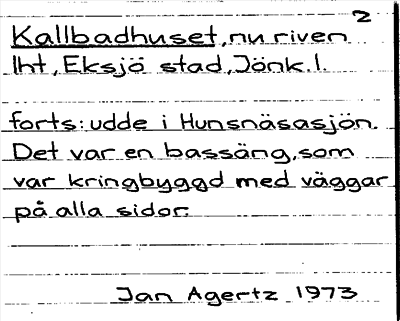 2
Kallbadhuset, nu riven
lht, Eksjö stad, Jönk. l.
forts: udde i Hunsnäsasjön.
Det var en bassäng, som
var kringbyggd med väggar
på alla sidor.
Jan Agertz 1973